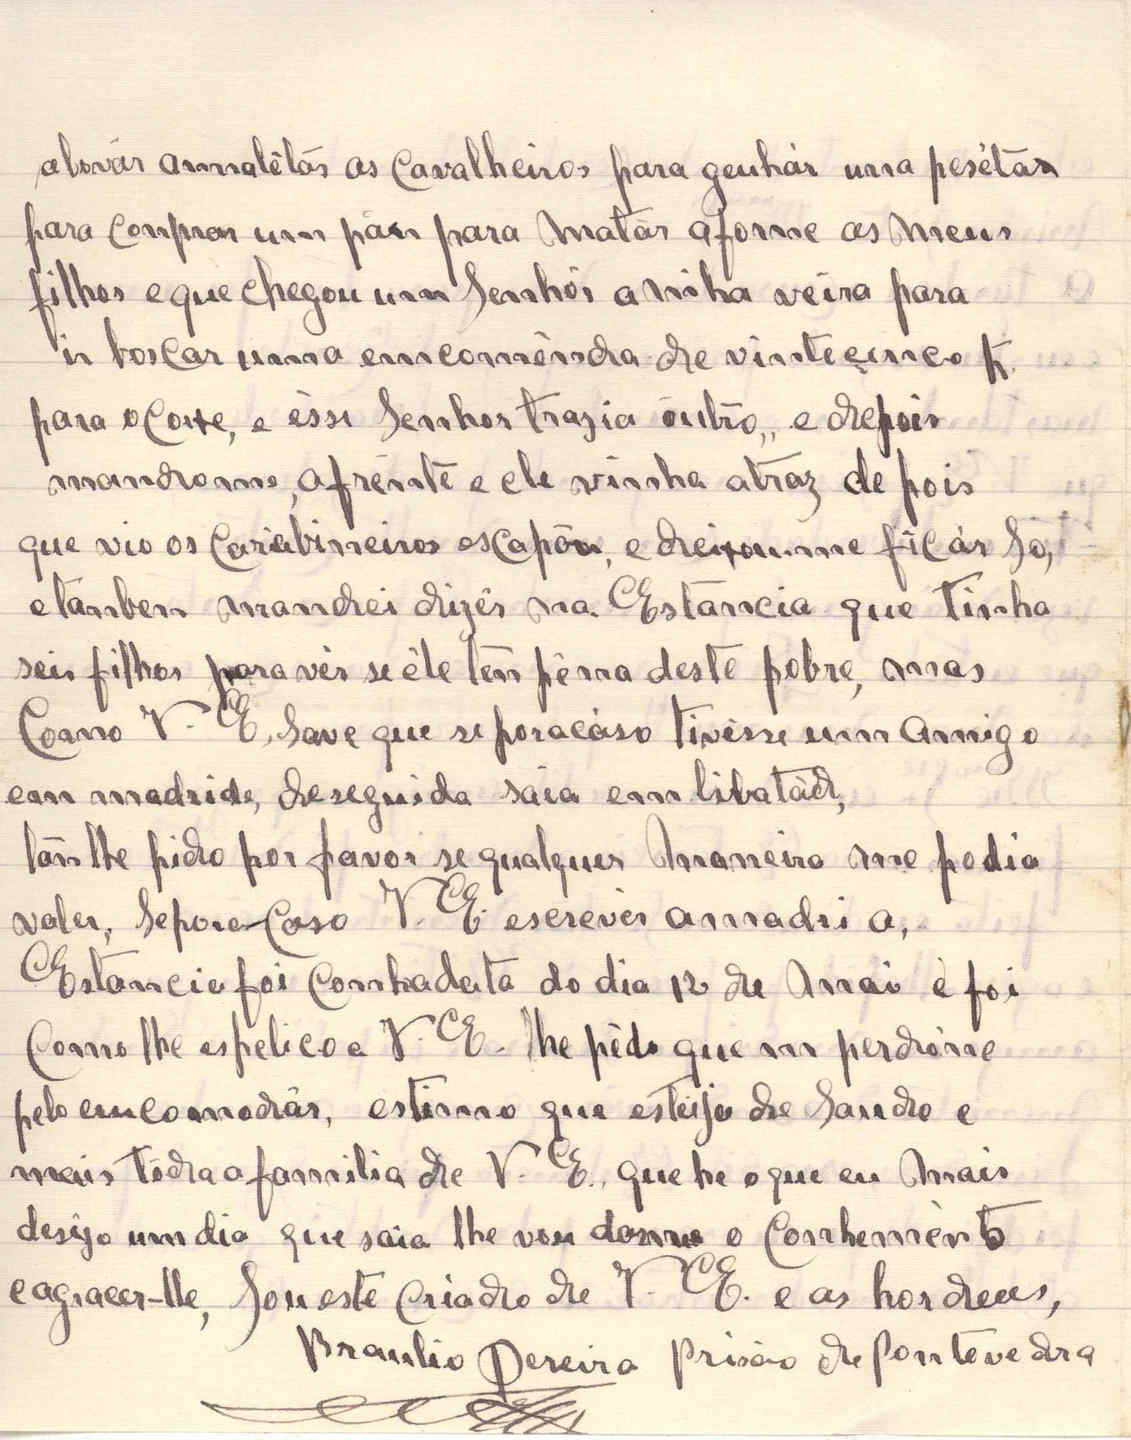 alovár amalêtás as Cavalheiros para genhár uma pesétas
para Conprar um pán para Matár afome as Meus
filhos e que chegou um Senhór a Minha veira para
ir boscar uma emcomênda de vinte çinco K.
para o Corte, e êsse Senhor trazia outrõ,, e depois
mandrome, afrente e ele vinha atraz de pois
que vio os Carabineiros escapõu, e deixoume fîcár Só,
e tanben Mandei dizêr na Estancia que tinha
seis filhos para vêr se êle tên pêna deste pobre, mas
Como V. E, Save que se poracáso tivêsse um Amigo
em madride, deseguida sáia em libatàd,
tãn lhe pido por favor se qualquer Maneira Me podia
valer, Sepore-Caso V. E. escrevér amadri a,
Estancia foi Comhadata do dia 12 de Mai è foi
Como lhe espelico a V. E. lhe pêdo que m perdióne
pelo emcomodár, estimo que esteija de Saudo e
mais tôda a familia de V. E., que he o que eu Mais
desijo um dia que saia lhe vou darme o Conhemênto
e agracer-lhe, Sou este Criado de V. E. e as hordeus,
Braulio Pereira Prisão de Pontevedra